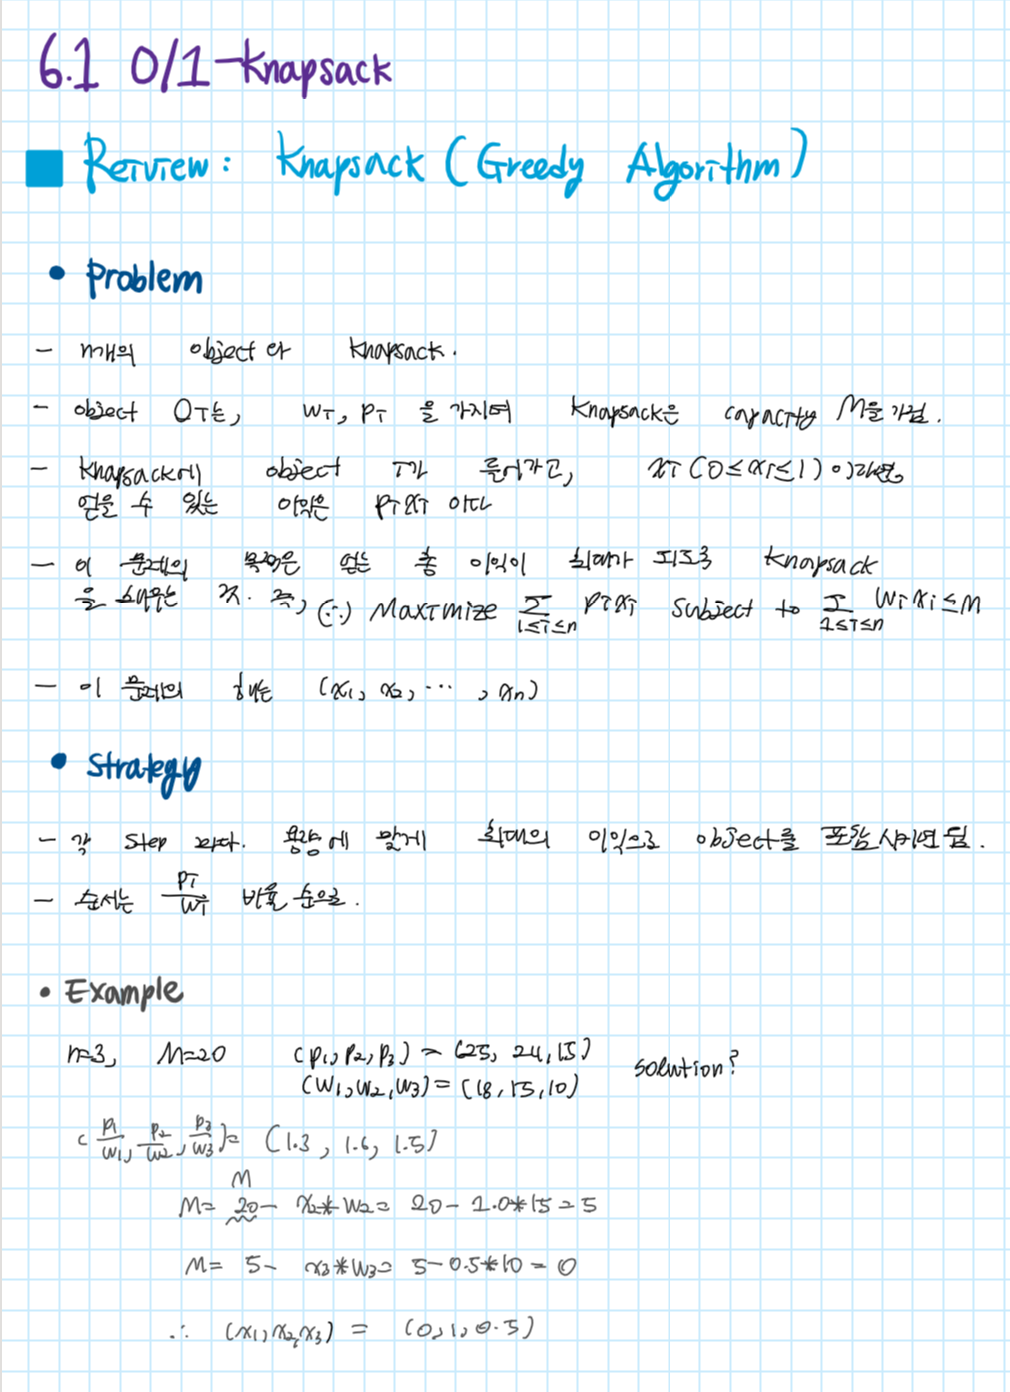 6.1 0/1-Knapsack
Review: Knapsack (Greedy Algorithm)
• Problem
- n개의 object와 Knapsack.
- object Oi는, wi, pi 을 가지며 Knapsack은 capacity M을 가짐.
- Knapsack에 object i가 들어가고, xi (0≤xi≤1) 이라면,
얻을 수 있는 이익은 pixi 이다
- 이 문제의 목적은 얻는 총 이익이 최대가 되도록 Knapsack
을 채우는 것. 즉, (∴) Maximize ∑ pixi subject to ∑ wixi≤M
1≤i≤n 1≤i≤n
- 이 문제의 해는 (x1, x2, ⋯ , xn)
• Strategy
- 각 step 마다. 용량에 맞게 최대의 이익으로 object를 포함시키면 됨.
- 순서는 pi/wi 비율 순으로.
• Example
n=3, M=20 (p1, p2, p3) = (25, 24, 15)
(w1, w2, w3) = (18, 15, 10) solution?
(p1/w1, p2/w2, p3/w3) = (1.3, 1.6, 1.5)
M
M= 20- x2*w2= 20- 1.0*15 = 5
M= 5- x3*w3= 5-0.5*10 = 0
∴ (x1, x2, x3) = (0, 1, 0.5)